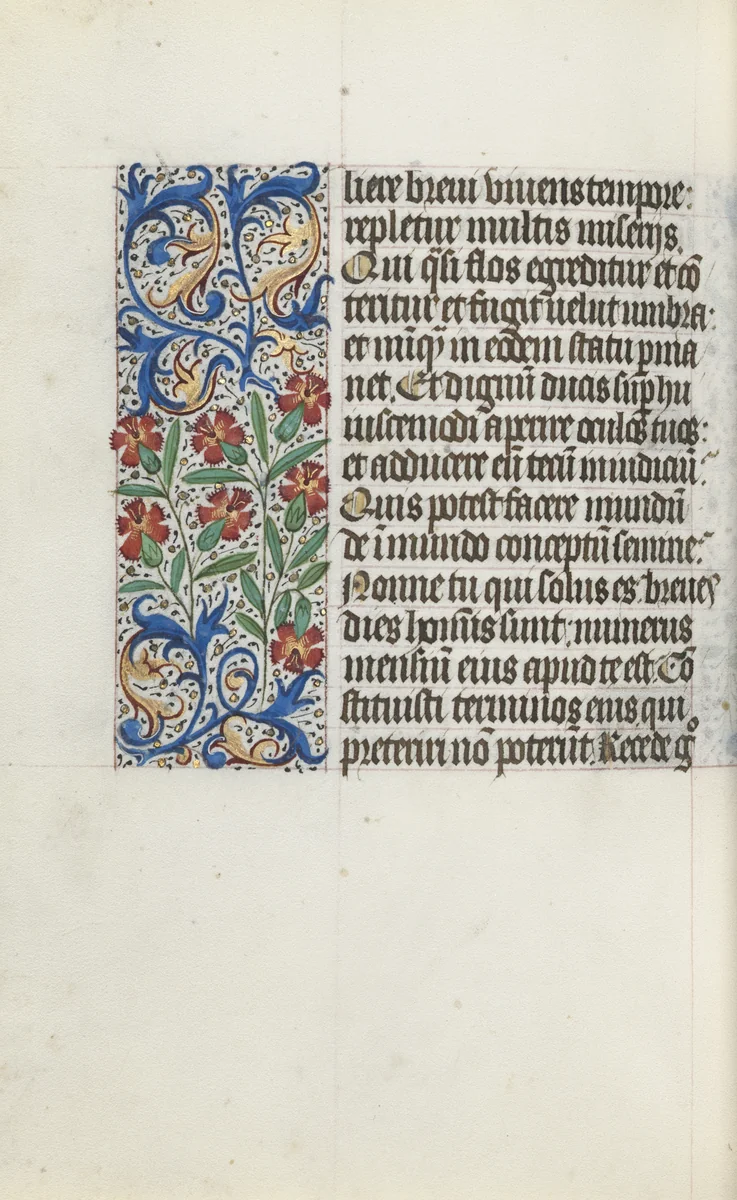 liere breui viuens tempore:
repletur multis miserijs.
Qui q̄si flos egreditur et cō
teritur et fugit uelut umbra:
et nūq̄ in eodem statu p̄ma
net. Et dignū duas sup̄ hu
iuscemodi aperire oculos tuos:
et adducere eū tecū in iudiciū?
Quis potest facere mundū
de īmundo conceptū semine?
Nonne tu qui solus es. breues
dies hoīnis sunt: numerus
mensiū eius apud te est. Cō
stituisti terminos eius qui
preteriri nō poterūt. Recede gͦ